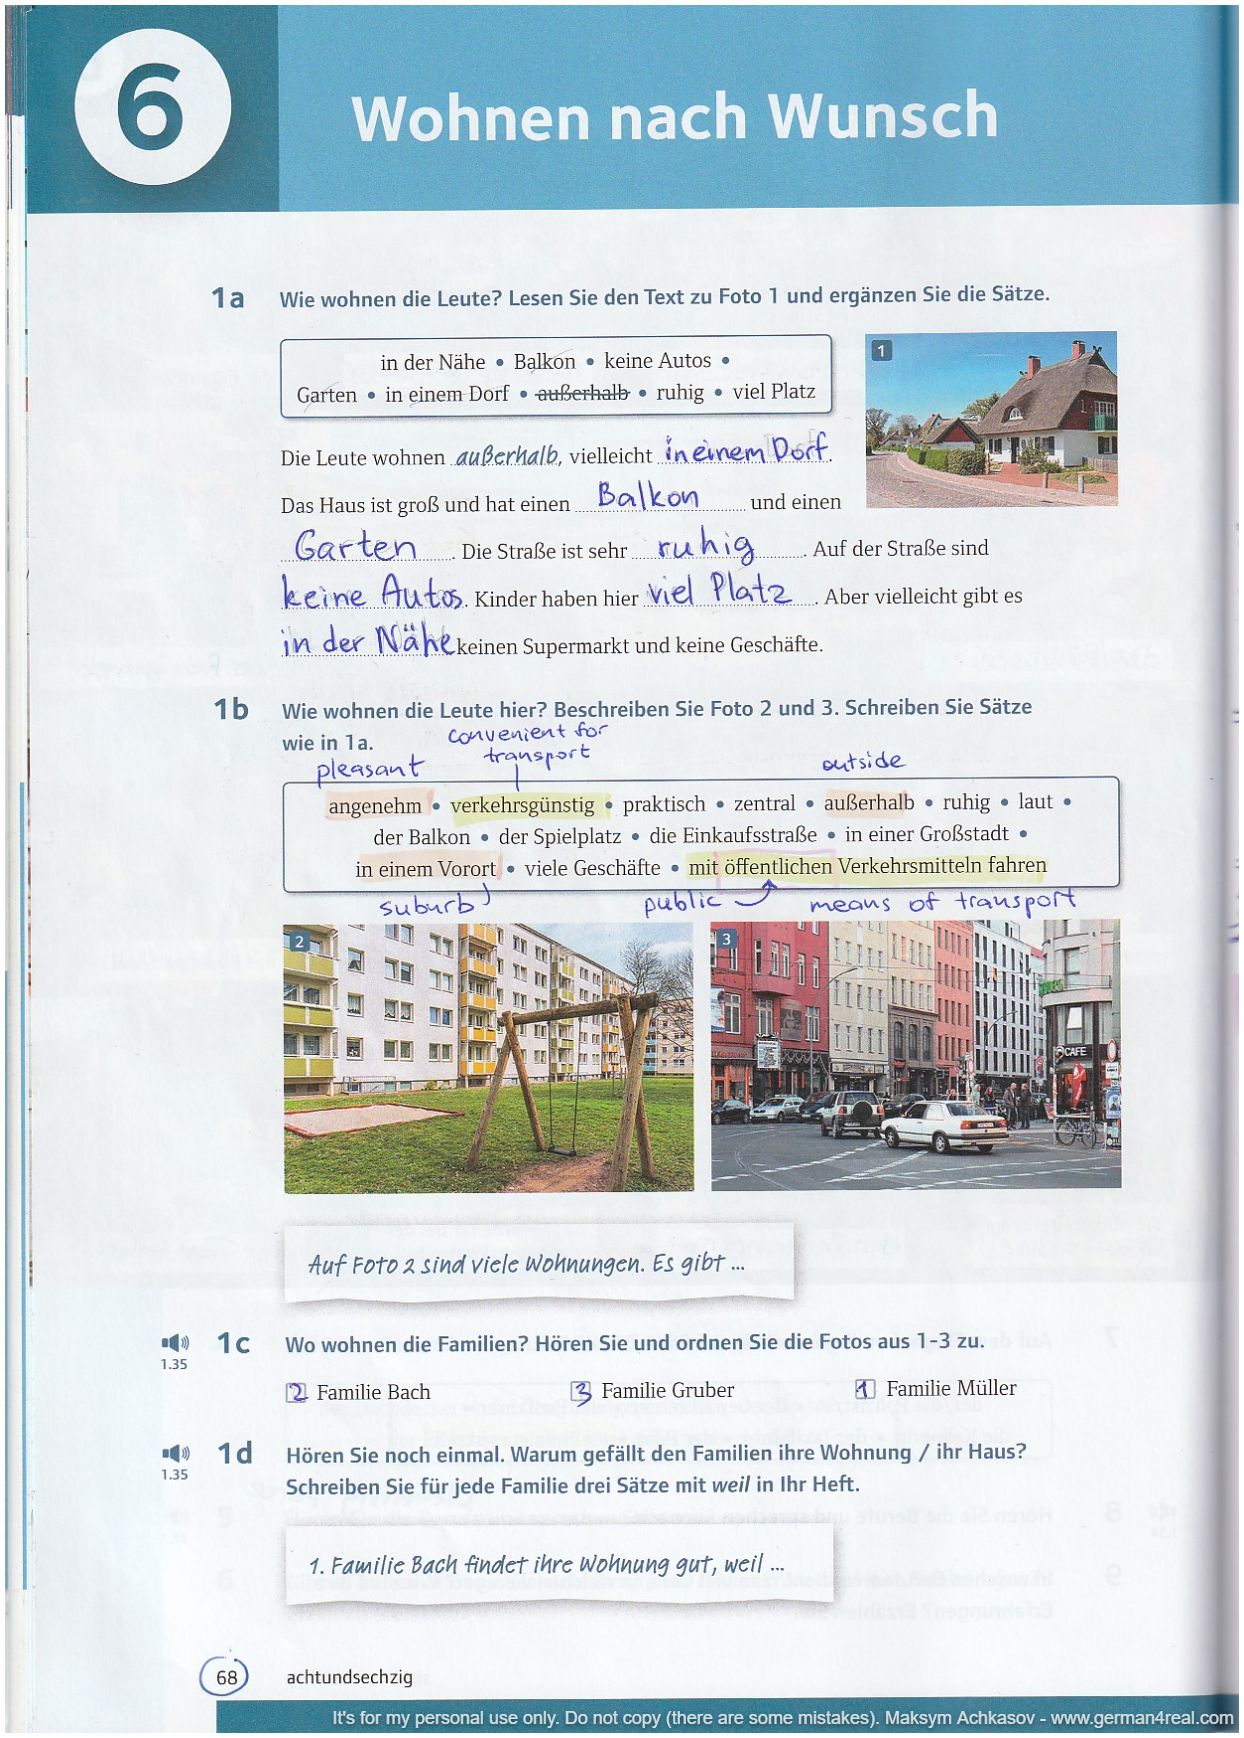 6
Wohnen nach Wunsch
1a Wie wohnen die Leute? Lesen Sie den Text zu Foto 1 und ergänzen Sie die Sätze.
in der Nähe • Balkon • keine Autos •
Garten • in einem Dorf • außerhalb • ruhig • viel Platz
1
Die Leute wohnen außerhalb, vielleicht in einem Dorf.
Das Haus ist groß und hat einen Balkon und einen
Garten. Die Straße ist sehr ruhig. Auf der Straße sind
keine Autos. Kinder haben hier viel Platz. Aber vielleicht gibt es
in der Nähe keinen Supermarkt und keine Geschäfte.
1b Wie wohnen die Leute hier? Beschreiben Sie Foto 2 und 3. Schreiben Sie Sätze
wie in 1a.
convenient for
transport
pleasant
outside
angenehm • verkehrsgünstig • praktisch • zentral • außerhalb • ruhig • laut •
der Balkon • der Spielplatz • die Einkaufsstraße • in einer Großstadt •
in einem Vorort • viele Geschäfte • mit öffentlichen Verkehrsmitteln fahren
suburb public means of transport
2
3
CAFE
Auf Foto 2 sind viele Wohnungen. Es gibt ...
1.35
1c Wo wohnen die Familien? Hören Sie und ordnen Sie die Fotos aus 1-3 zu.
2 Familie Bach 3 Familie Gruber 1 Familie Müller
1.35
1d Hören Sie noch einmal. Warum gefällt den Familien ihre Wohnung / ihr Haus?
Schreiben Sie für jede Familie drei Sätze mit weil in Ihr Heft.
1. Familie Bach findet ihre Wohnung gut, weil ...
68 achtundsechzig
It's for my personal use only. Do not copy (there are some mistakes). Maksym Achkasov - www.german4real.com